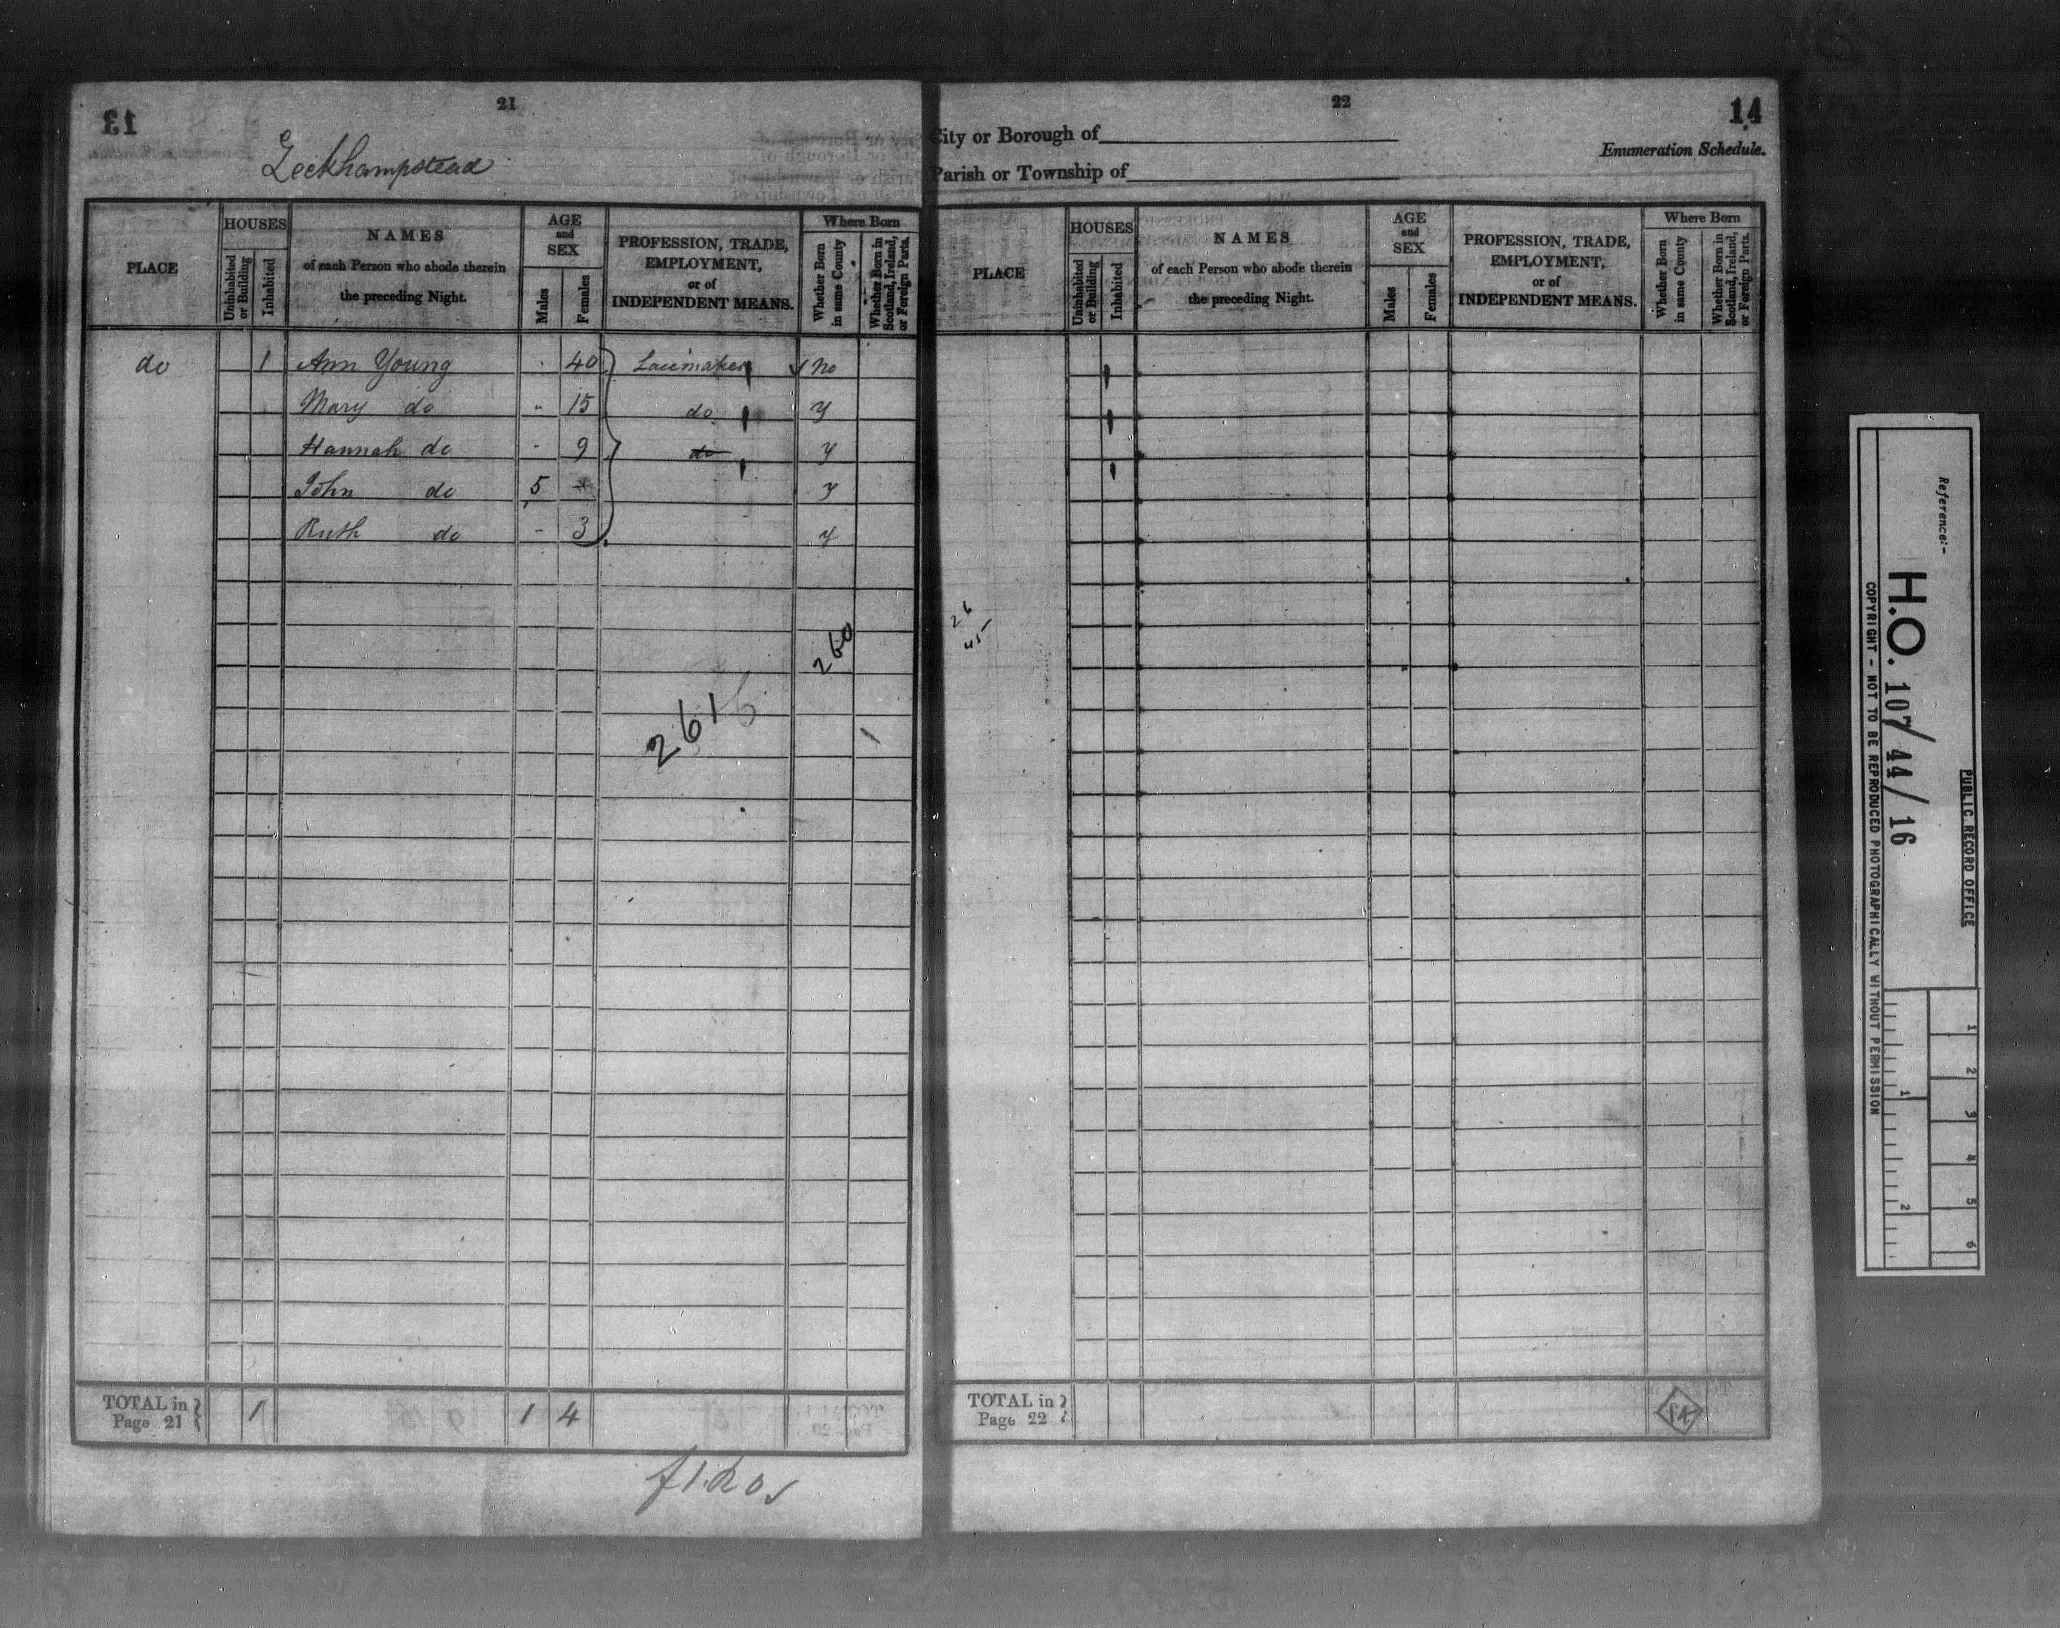 21
13
Leckhampstead
PLACE
HOUSES
Uninhabited or Building
Inhabited
NAMES
of each Person who abode therein
the preceding Night.
AGE
and
SEX
Males
Females
PROFESSION, TRADE,
EMPLOYMENT,
or of
INDEPENDENT MEANS.
Where Born
Whether Born in same County
Whether Born in Scotland, Ireland, or Foreign Parts.
do 1 Ann Young - 40 Lacemaker no
Mary do " 15 do y
Hannah do - 9 do y
John do 5 y
Ruth do - 3 y
260
261
TOTAL in Page 21 1 1 4
22
14
City or Borough of
Enumeration Schedule.
Parish or Township of
PLACE
HOUSES
Uninhabited or Building
Inhabited
NAMES
of each Person who abode therein
the preceding Night.
AGE
and
SEX
Males
Females
PROFESSION, TRADE,
EMPLOYMENT,
or of
INDEPENDENT MEANS.
Where Born
Whether Born in same County
Whether Born in Scotland, Ireland, or Foreign Parts.
26
45
TOTAL in Page 22
PUBLIC RECORD OFFICE
Reference:-
H.O. 107/44/16
COPYRIGHT - NOT TO BE REPRODUCED PHOTOGRAPHICALLY WITHOUT PERMISSION
1 2 3 4 5 6
1 2